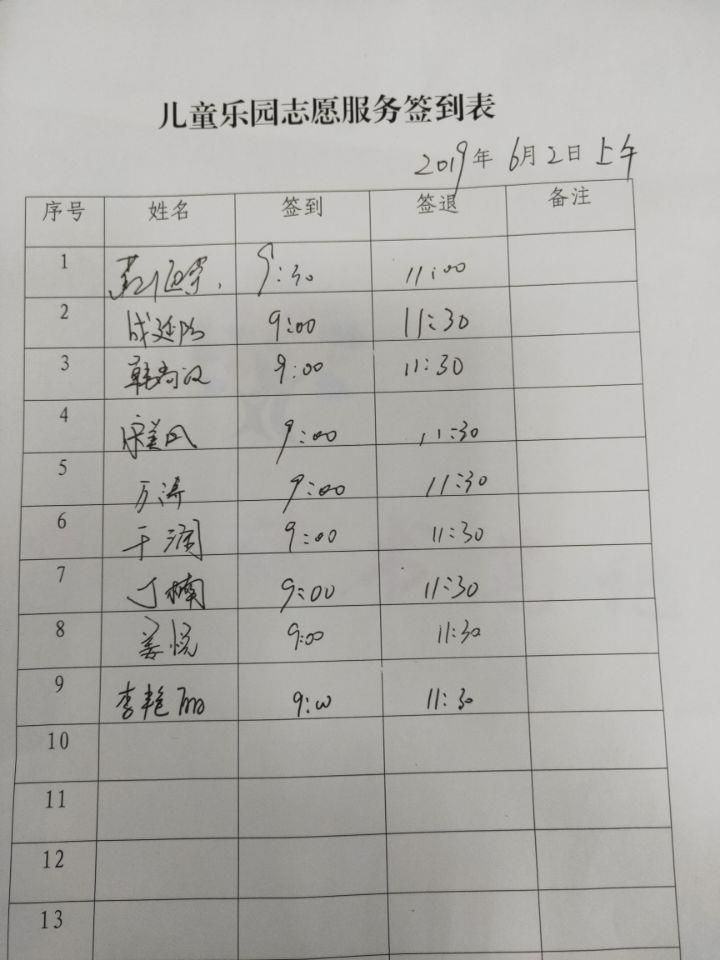 儿童乐园志愿服务签到表
2019年 6月2日 上午
序号 姓名 签到 签退 备注
1 9:30 11:00
2 9:00 11:30
3 9:00 11:30
4 宋美风 9:00 11:30
5 万涛 9:00 11:30
6 9:00 11:30
7 丁楠 9:00 11:30
8 姜悦 9:00 11:30
9 李艳丽 9:00 11:30
10
11
12
13